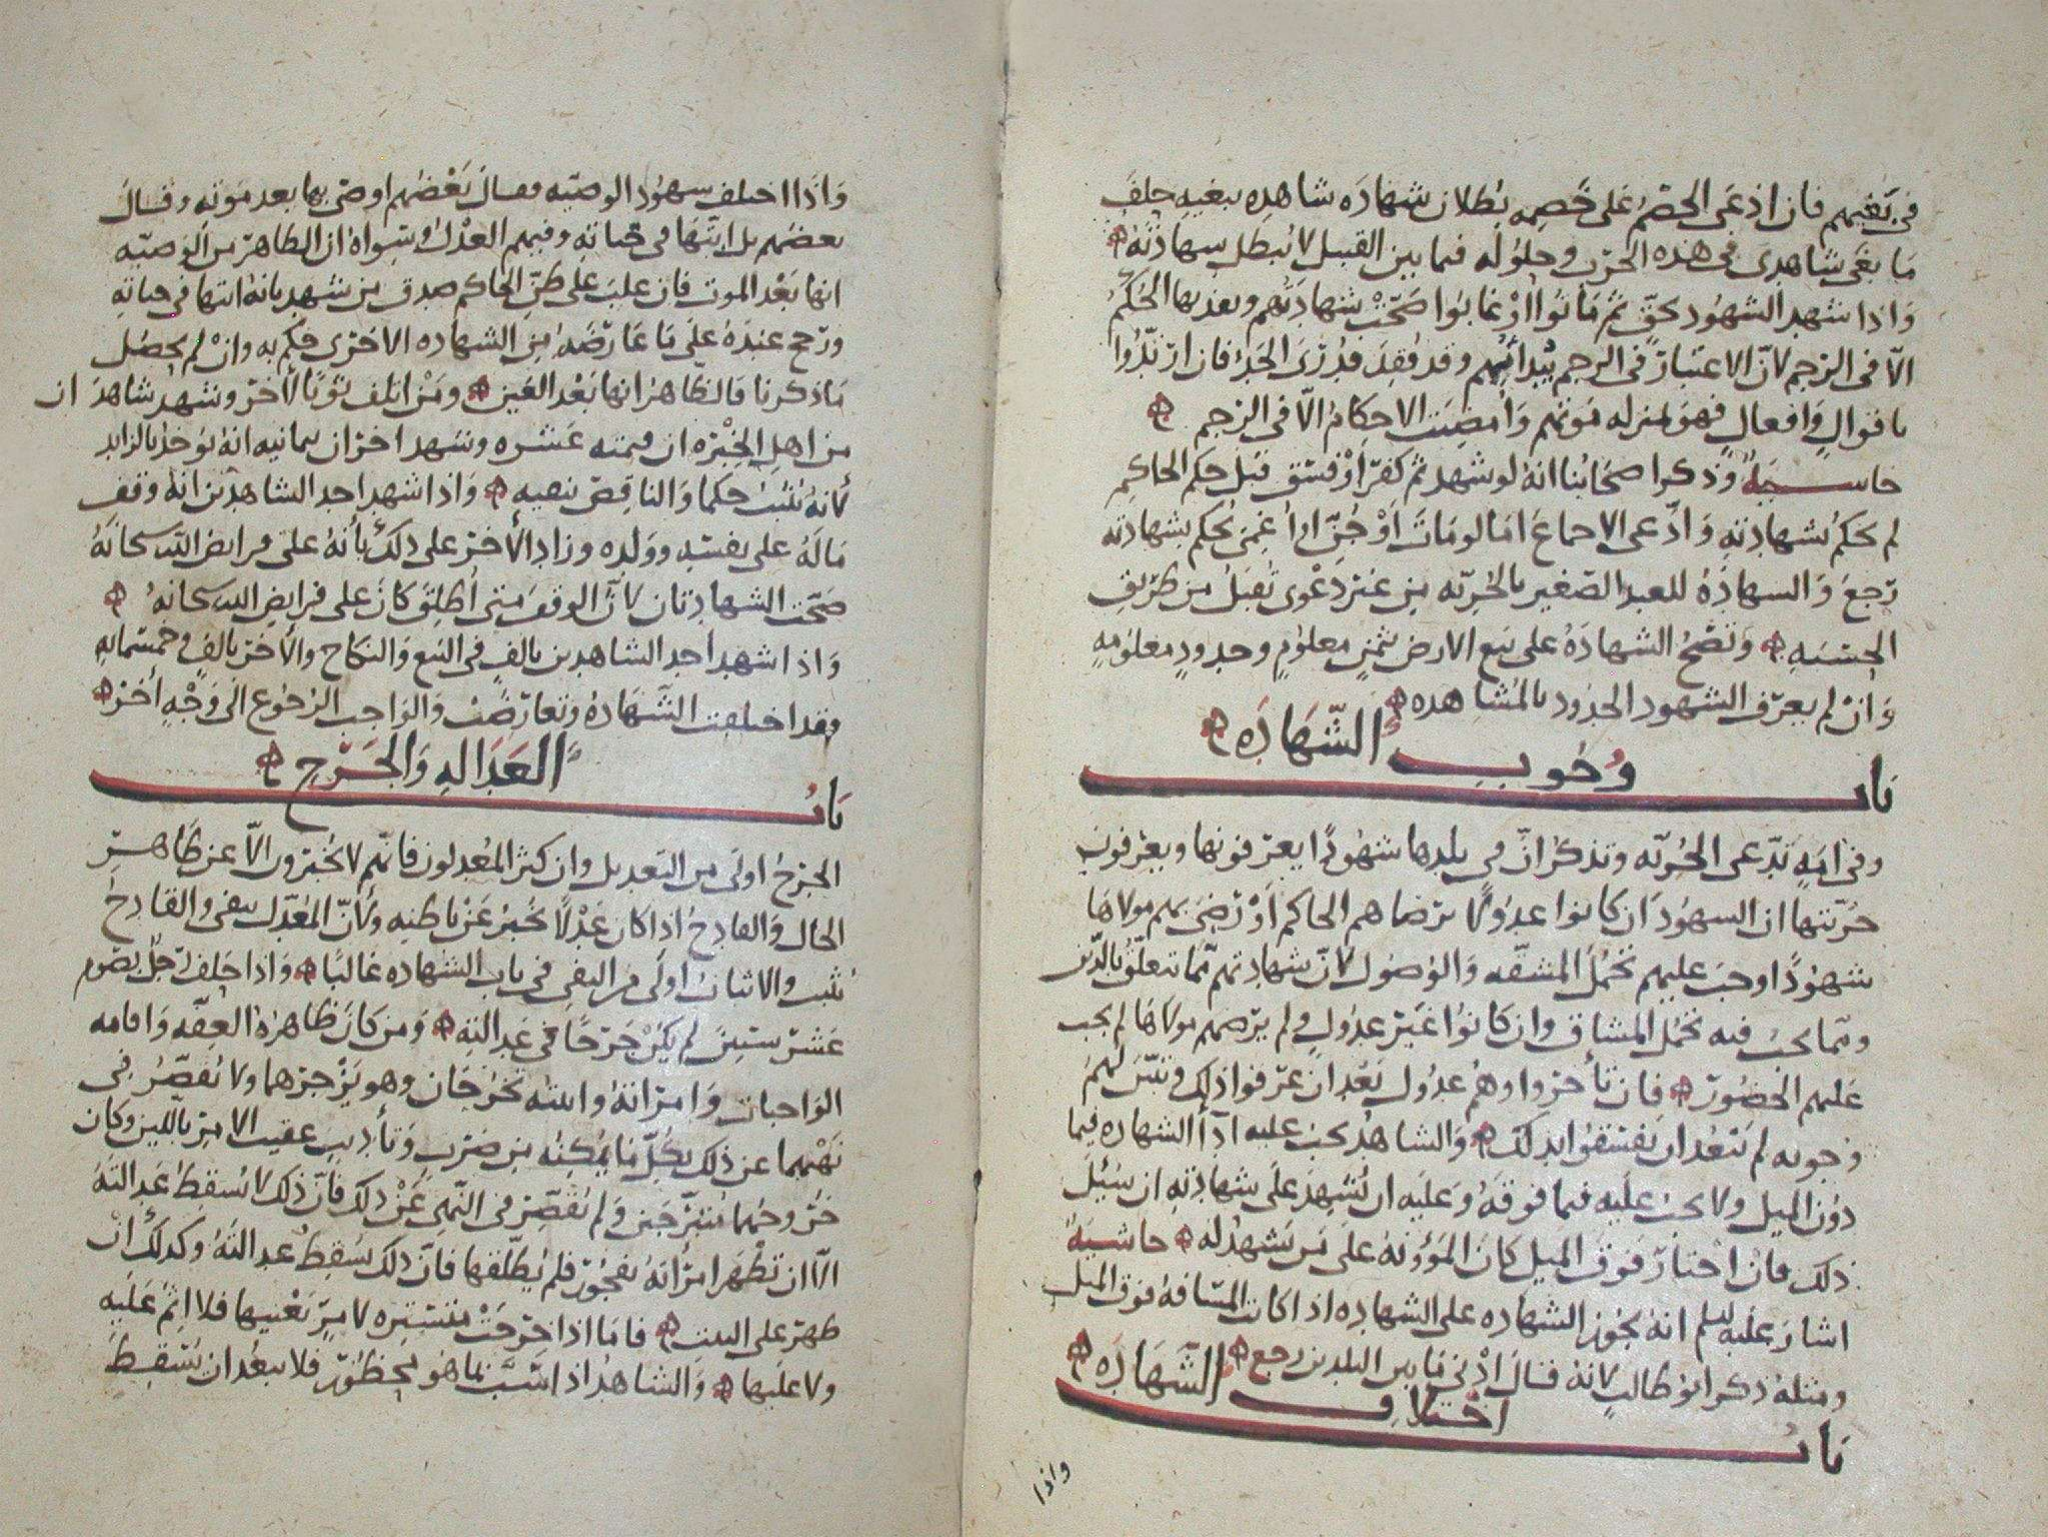 في بغيهم فان ادعى الخصم على خصمه بطلان شهادة شاهده ببغيه حلف
ما بغى شاهدي في هذه الحرب وحلوله فيما بين القبيل لا تبطل شهادته
واذا شهد الشهود بحق ثم ماتوا او غابوا صحت شهادتهم وبعد بها الحكم
الا في الرجم لان الاعتبار في الرجم ببدائهم وقد فقد فدرئ الحد فان ارتدوا
باقوال وافعال فهو بمنزله موتهم وامضيت الاحكام الا في الرجم
حاشية وذكر اصحابنا انه لو شهد ثم كفر او فسق قبل حكم الحاكم
لم يحكم بشهادته وادعى الاجماع اما لو مات او جن او اغمى يحكم بشهادته
رجع والشهاده للعبد الصغير بالحريه من غير دعوى تقبل من طريق
الحسبه وتصح الشهاده على بيع الارض بثمن معلوم وحدود معلومه
وان لم يعرف الشهود الحدود بالمشاهده
باب وجوب الشهاده
وفي امه تدعى الحريه وتذكر ان في بلدها شهودا يعرفونها ويعرفون
حريتها ان الشهود ان كانوا عدولا يرضاهم الحاكم او ترضى بهم مولاها
شهودا وجب عليهم تحمل المشقه والوصول لان شهادتهم مما تتعلق بالدين
ومما يجب فيه تحمل المشاق وان كانوا غير عدول ولم يرضهم مولاها لم يجب
عليهم الحضور فان تأخروا وهم عدول بعد ان عرفوا ذلك وتبين لهم
وجوبه لم يبعد ان يفسقوا بذلك والشاهد يجب عليه ادآء الشهاده فيما
دون الميل ولا يجب عليه فيما فوقه وعليه ان يشهد على شهادته ان سئل
ذلك فان اختار فوق الميل كان المؤونة على من يشهد له حاشية
اشار عليه السلم انه يجوز الشهاده على الشهاده اذا كانت المسافة فوق الميل
ومثله ذكر ابو طالب لانه قال ادنى ما بين البلدين رجع
باب اختلاف الشهاده
واذا
واذا اختلف شهود الوصيه فقال بعضهم اوصى بها بعد موته وقال
بعضهم بل ابتها في حياته وفيهم العدل وسواه ان الظاهر من الوصيه
انها بعد الموت فان غلب على ظن الحاكم صدق من شهد بانه ابتها في حياته
ورجح عنده على ما عارضه من الشهاده الاخرى حكم به وان لم يحصل
ما ذكرنا فالظاهر انها بعد العين ومن اتلف ثوبا لآخر وشهد شاهدان
من اهل الخبره ان قيمته عشره وشهد اخران بمانيه انه يوخذ بالزايد
لأنه يثبت حكما والناقص ينفيه واذا شهد احد الشاهدين انه وقف
ماله على نفسه وولده وزاد الأخر على ذلك بأنه على فرايض الله سبحانه
صحت الشهادتان لأن الوقف متى اطلق كان على فرايض الله سبحانه
واذا شهد احد الشاهدين بالف في البيع والنكاح والأخر بالف وخمسمائه
فقد اختلفت الشهاده وتعارضت والواجب الرجوع الى وجه اخر
باب العداله والجرح
الجرح اولى من التعديل وان كثر المعدلون فانهم لا يخبرون الا عن ظاهر
الحال والقادح اذا كان عدلا يخبر عن باطنه ولأن المعدل ينفي والقادح
يثبت والاثبات اولى من النفي في باب الشهاده غالبا واذا حلف رجل بصوم
عشر سنين لم يكن جرحا في عدالته ومن كان ظاهره العفه واقامه
الواجبات وامراته وابنته تخرجان وهو يزجرهما ولا يقصر في
نهيهما عن ذلك بكل ما يمكنه من ضرب وتأديب عقيب الامر باللين وكان
خروجهما متبرجين ولم يقصر في النهي عن ذلك فان ذلك لا يسقط عدالته
الا ان تظهر امرأته بفجور فلم يطلقها فان ذلك يسقط عدالته وكذلك ان
ظهر على البنت فاما اذا خرجت متستره لامر يعنيها فلا اثم عليه
ولا عليها والشاهد اذا سب بما هو محظور فلا يبعد ان يسقط